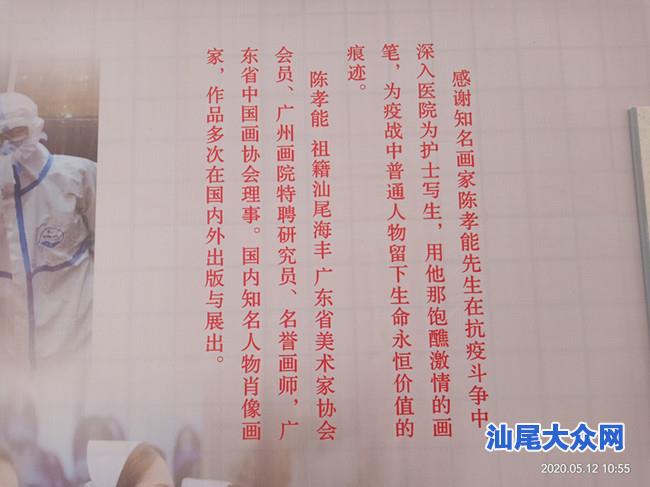 感谢知名画家陈孝能先生在抗疫斗争中
深入医院为护士写生，用他那饱醮激情的画
笔，为疫战中普通人物留下生命永恒价值的
痕迹。
陈孝能 祖籍汕尾海丰 广东省美术家协会
会员、广州画院特聘研究员、名誉画师，广
东省中国画协会理事。国内知名人物肖像画
家，作品多次在国内外出版与展出。
汕尾大众网
2020.05.12 10:55